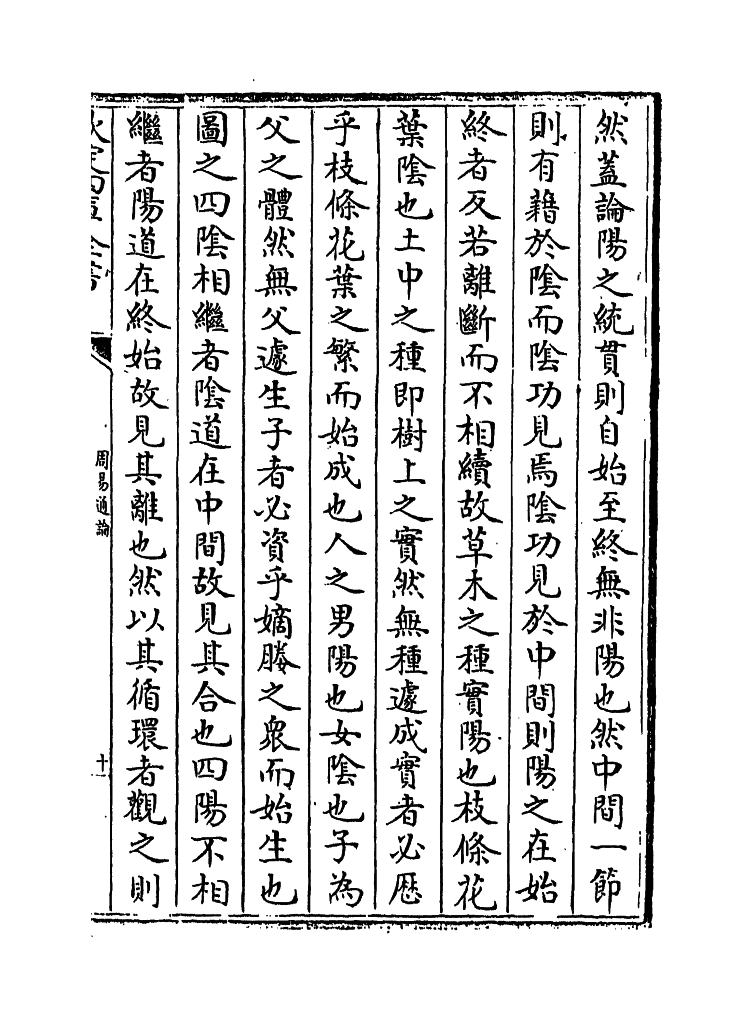 然蓋論陽之統貫則自始至終無非陽也然中間一節
則有藉於陰而陰功見焉陰功見於中間則陽之在始
終者反若離斷而不相續故草木之種實陽也枝條花
葉陰也土中之種即樹上之實然無種遽成實者必歷
乎枝條花葉之繁而始成也人之男陽也女陰也子為
父之體然無父遽生子者必資乎嫡媵之衆而始生也
圖之四陰相繼者陰道在中間故見其合也四陽不相
繼者陽道在終始故見其離也然以其循環者觀之則
周易通論
十